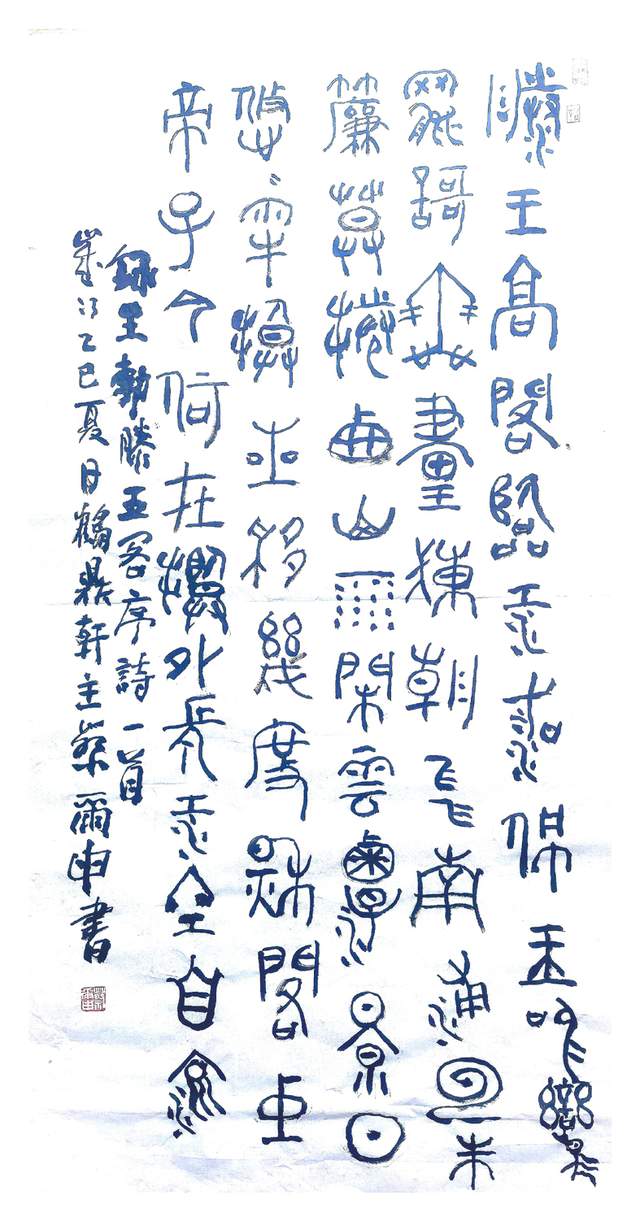 滕王高閣臨江渚佩玉鳴鸞
罷歌舞畫棟朝飛南浦雲朱
簾暮捲西山雨閑雲潭影日
悠〻物換星移幾度秋閣中
帝子今何在檻外長江空自流
錄王勃滕王閣序詩一首
歲次乙巳夏日鶴鼎軒主爾申書